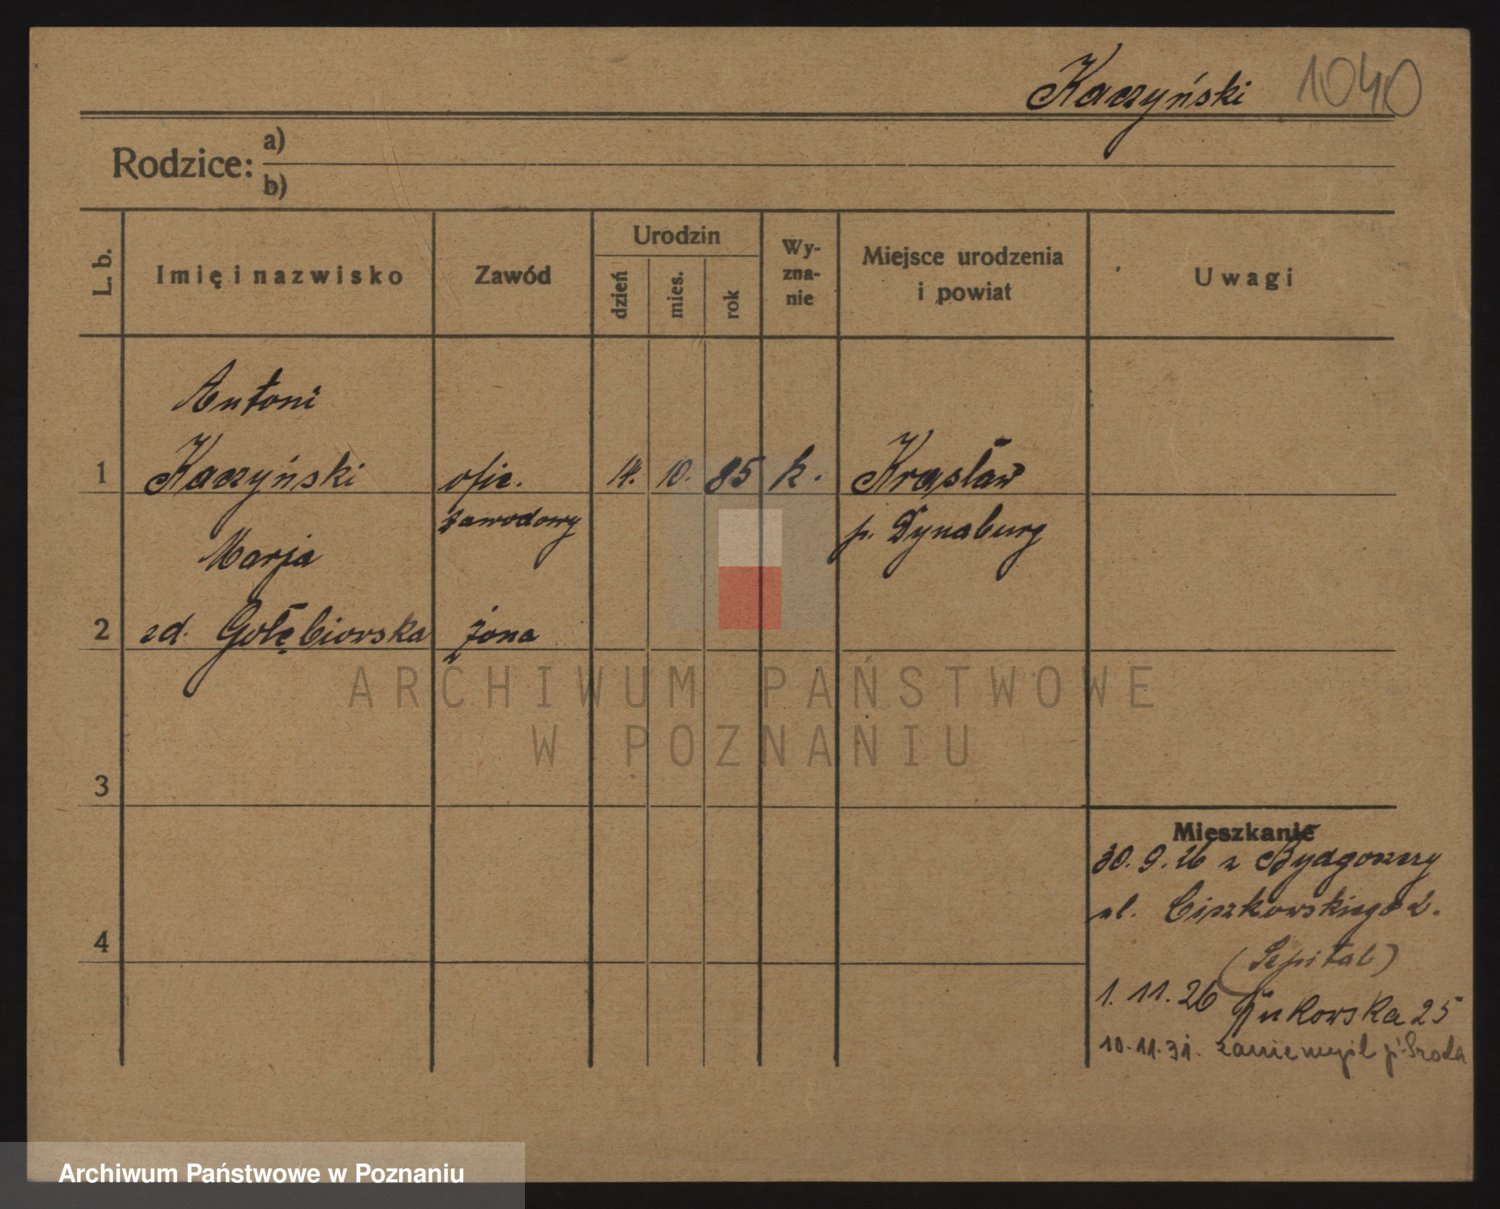 Kaczyński 1040
Rodzice: a)
b)
L. b. Imię i nazwisko Zawód Urodzin dzień mies. rok Wy-zna-nie Miejsce urodzenia i powiat Uwagi
Antoni
1 Kaczyński ofic. 14. 10. 85 k. Krasław
zawodowy p. Dynaburg
Marja
2 zd. Gołębiowska żona
ARCHIWUM PAŃSTWOWE
W POZNANIU
3
Mieszkanie
30.9.26 z Bydgoszczy
ul. Ciszkowskiego 2.
4
(Szpital)
1.11.26 Bukowska 25
10.11.31. Zaniemyśl p. Środa
Archiwum Państwowe w Poznaniu